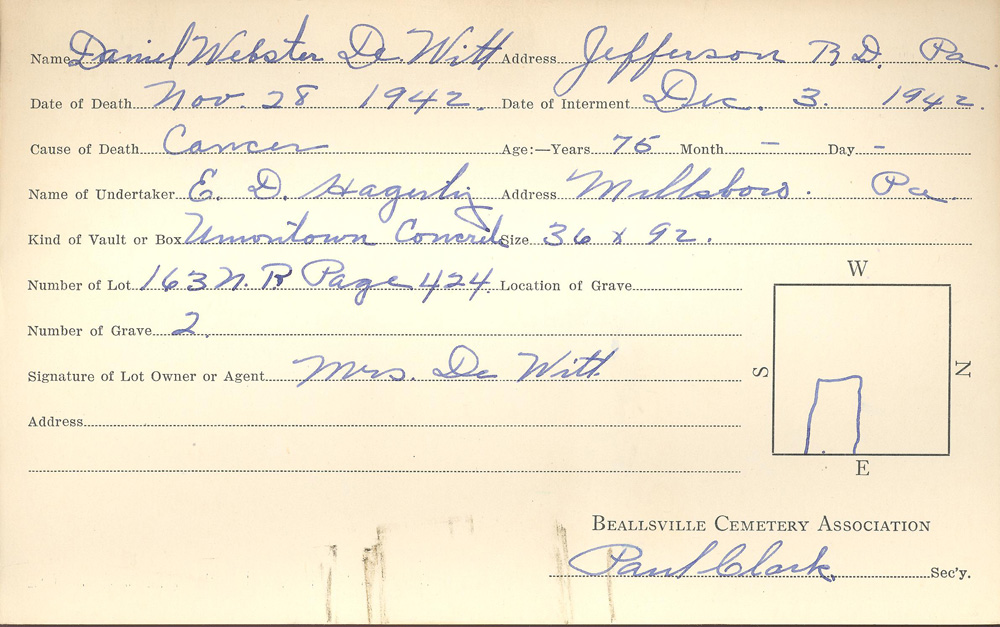 Name Daniel Webster De Witt Address Jefferson R D. Pa.
Date of Death Nov. 28 1942. Date of Interment Dec. 3. 1942.
Cause of Death Cancer Age:—Years 75 Month – Day –
Name of Undertaker E. D. Hagerty Address Millsboro. Pa.
Kind of Vault or Box Uniontown Concrete Size 36 x 92.
Number of Lot 163 N. R Page 424. Location of Grave
W
Number of Grave 2.
Signature of Lot Owner or Agent Mrs. De Witt
S N
Address
E
Beallsville Cemetery Association
Paul Clark. Sec'y.